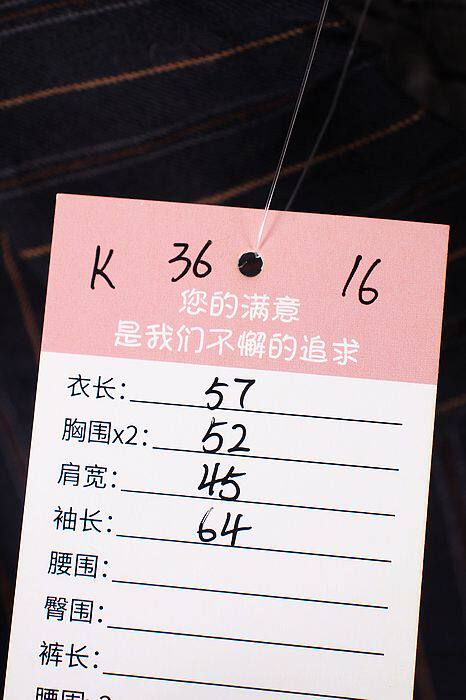 K 36 16
您的满意
是我们不懈的追求
衣长: 57
胸围x2: 52
肩宽: 45
袖长: 64
腰围:
臀围:
裤长: